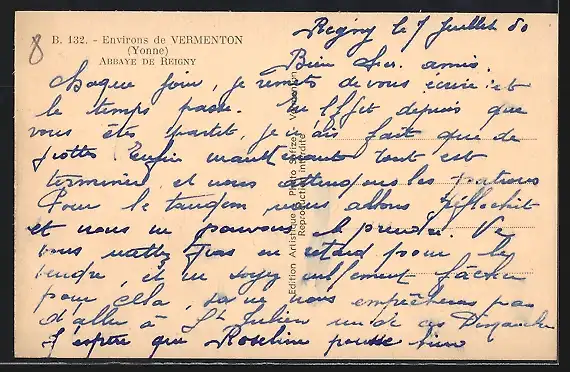 8
B. 132. - Environs de VERMENTON
(Yonne)
ABBAYE DE REIGNY
Reigny le 7 Juillet 50
Bien chers amis.
Chaque jour, je remets de vous écrire et
le temps passe. En effet depuis que
vous êtes partit, je n'ais fait que de
frotter. Enfin maintenant tout est
terminer et nous attendons les patrons
Pour le tandem nous allons réfléchit
et nous ne pouvons le prendre. Ne
vous mettez pas en retard pour le
vendre, et ne soyez nullement fâcher
pour cela, sa ne nous empêcheras pas
d'aller à St Julien un de ces Dimanche
J'espère que Roseline pousse bien
Edition Artistique Photo
Vermenton
Reproduction interdite